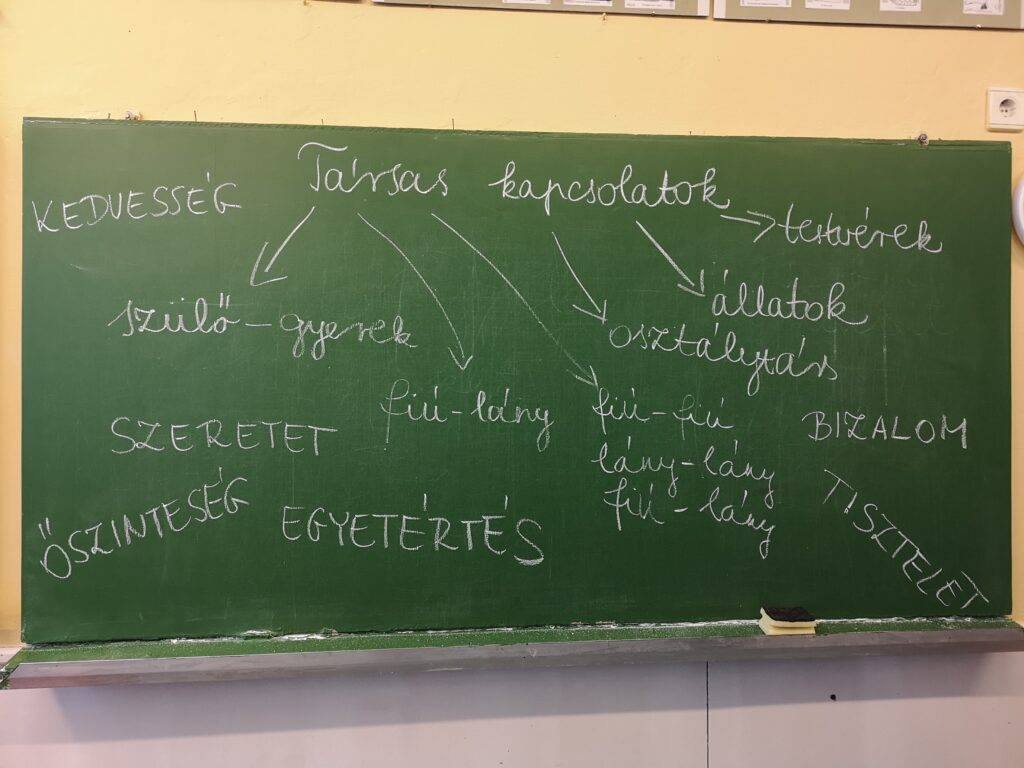 KEDVESSÉG
Társas kapcsolatok
testvérek
szülő-gyerek
állatok
osztálytárs
fiú-lány
fiú-fiú
lány-lány
fiú-lány
SZERETET
BIZALOM
ŐSZINTESÉG
EGYETÉRTÉS
TISZTELET